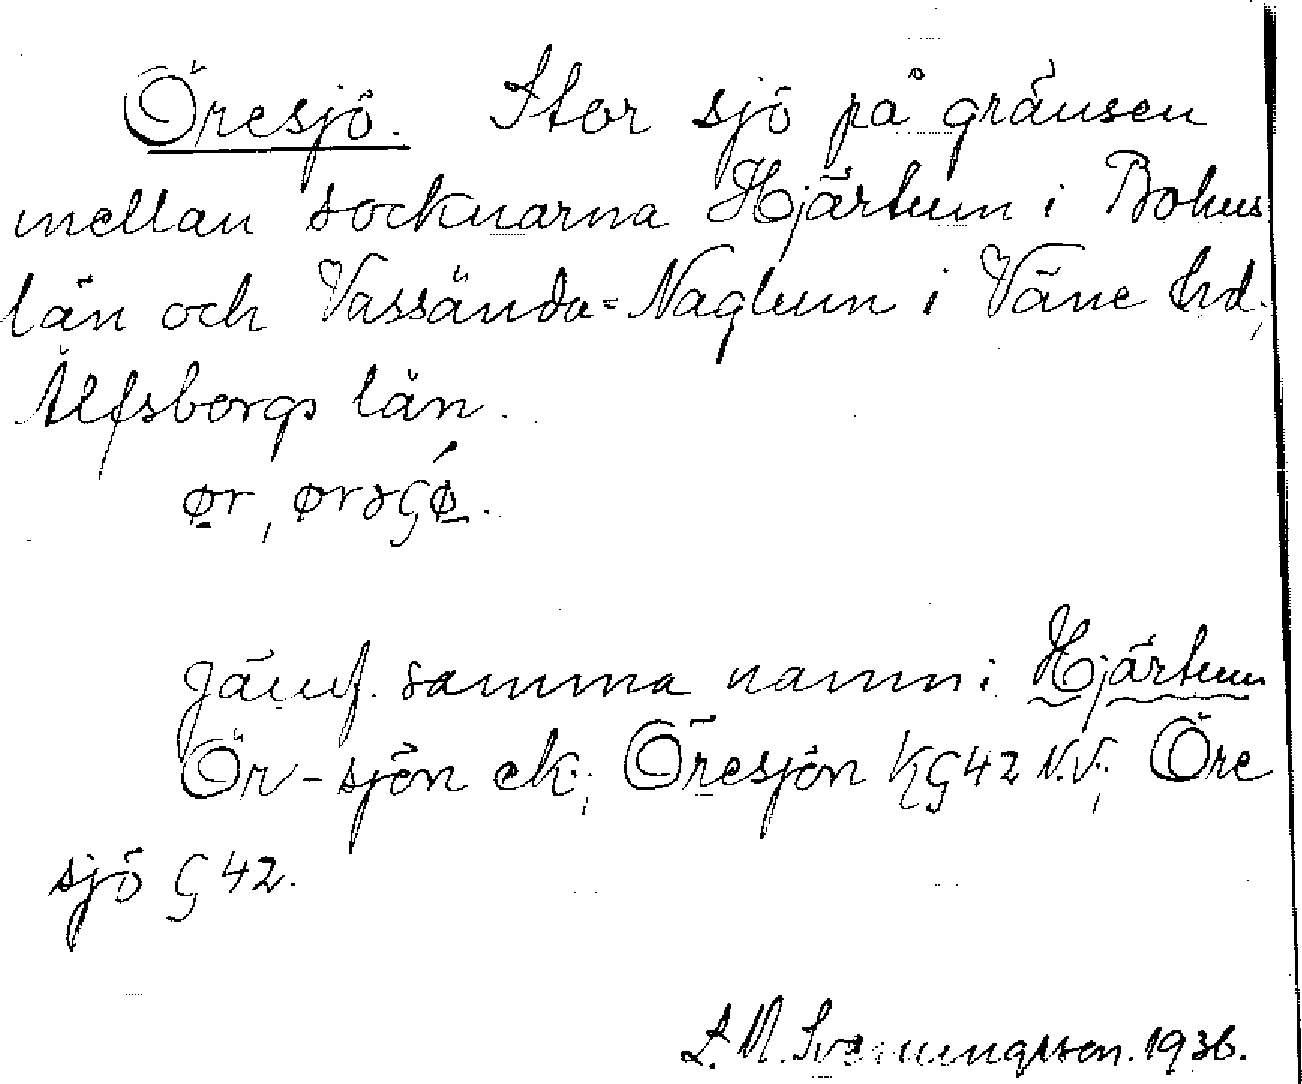 Öresjö. Stor sjö på gränsen
mellan socknarna Hjärtum i Bohus
län och Vassända-Naglum i Väne hd,
Älfsborgs län.
Jämf. samma namn i Hjärtum
Ör-sjön ek.; Öresjön KG42 N.V; Öre
sjö G 42.
S. M. Svenningsson. 1936.